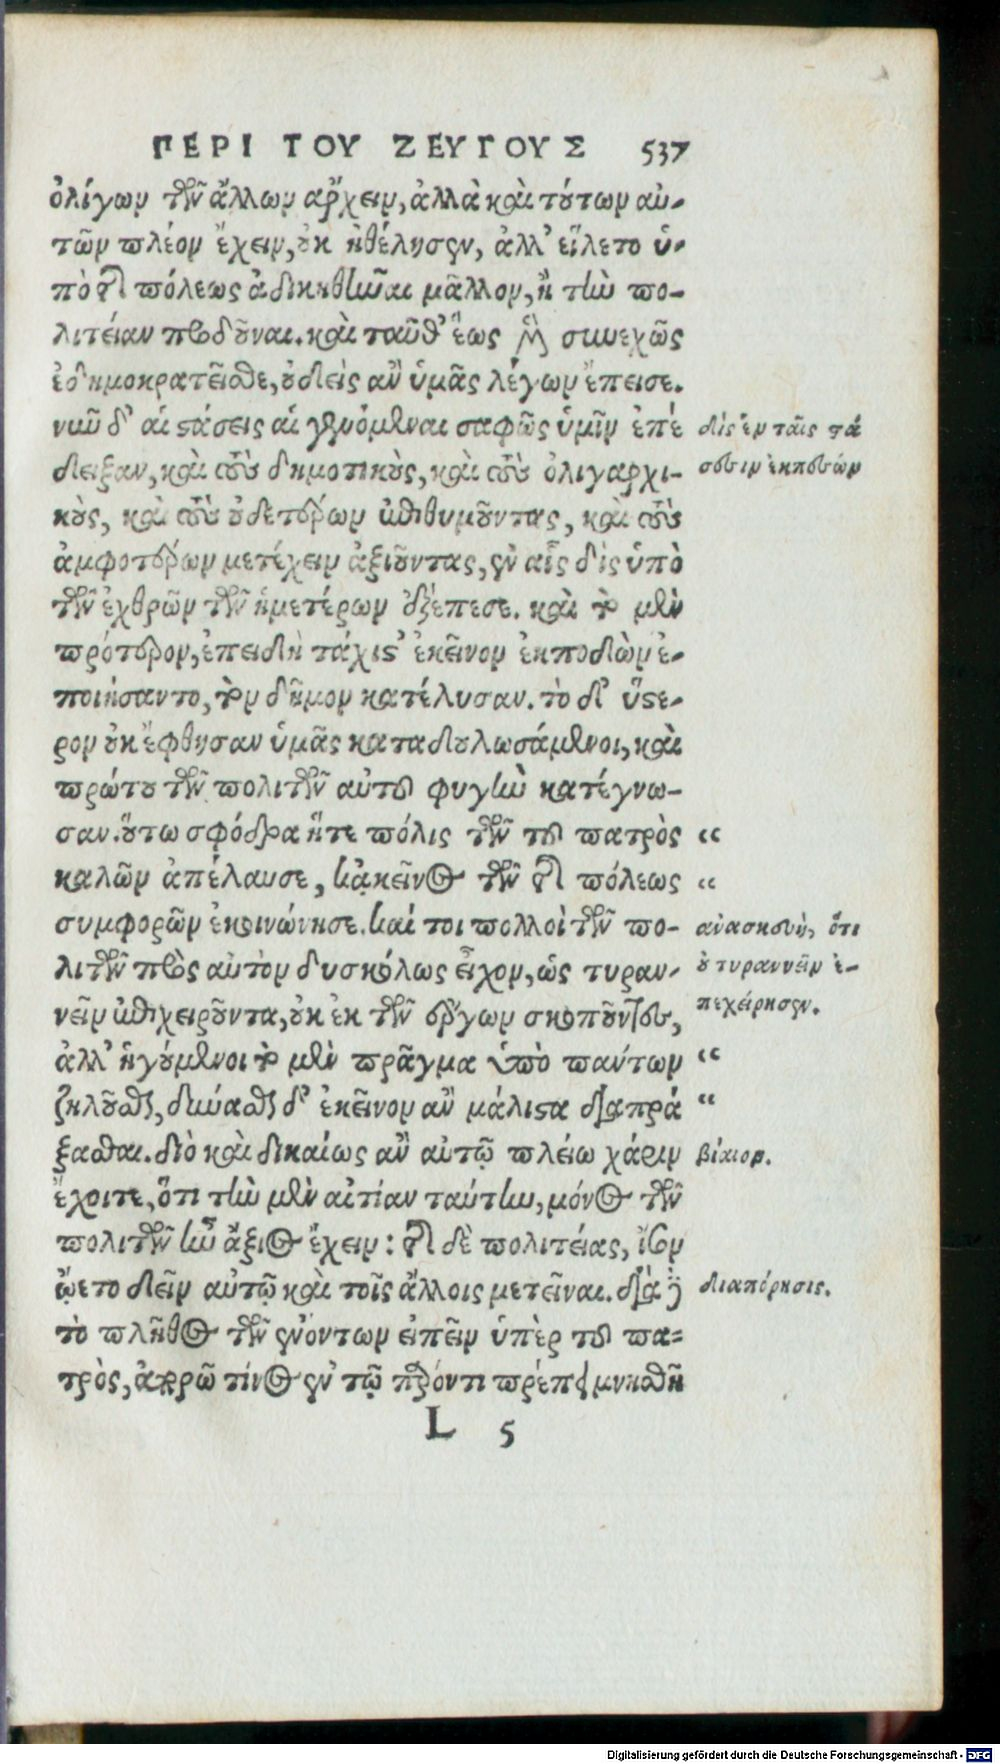 ΠΕΡΙ ΤΟΥ ΖΕΥΓΟΥΣ 537
ὀλίγων τῶν ἄλλων ἄρχειν, ἀλλὰ καὶ τούτων αὐ-
τῶν πλέον ἔχειν, οὐκ ἠθέλησεν, ἀλλ' εἵλετο ὑ-
πὸ τῆς πόλεως ἀδικηθῆναι μᾶλλον, ἢ τὴν πο-
λιτείαν προδοῦναι. καὶ ταῦθ' ἕως μὲν συνεχῶς
ἐδημοκρατεῖσθε, οὐδεὶς ἂν ὑμᾶς λέγων ἔπεισε.
νῦν δ' αἱ στάσεις αἱ γενόμεναι σαφῶς ὑμῖν ἐπέ
δειξαν, καὶ τοὺς δημοτικοὺς, καὶ τοὺς ὀλιγαρχι-
κοὺς, καὶ τοὺς οὐδετέρων ἐπιθυμοῦντας, καὶ τοὺς
ἀμφοτέρων μετέχειν ἀξιοῦντας, ἐν αἷς δὶς ὑπὸ
τῶν ἐχθρῶν τῶν ἡμετέρων ἐξέπεσε. καὶ τὸ μὲν
πρότερον, ἐπειδὴ τάχιστ' ἐκεῖνον ἐκποδὼν ἐ-
ποιήσαντο, τὸν δῆμον κατέλυσαν. τὸ δ' ὕστε-
ρον οὐκ ἔφθησαν ὑμᾶς καταδουλωσάμενοι, καὶ
πρώτου τῶν πολιτῶν αὐτοῦ φυγὴν κατέγνω-
σαν. οὕτω σφόδρα ἥτε πόλις τῶν τοῦ πατρὸς
καλῶν ἀπέλαυσε, κἀκεῖνος τῶν τῆς πόλεως
συμφορῶν ἐκοινώνησε. καί τοι πολλοὶ τῶν πο-
λιτῶν πρὸς αὐτὸν δυσκόλως εἶχον, ὡς τυραν-
νεῖν ἐπιχειροῦντα, οὐκ ἐκ τῶν ἔργων σκοποῦντες,
ἀλλ' ἡγούμενοι τὸ μὲν πρᾶγμα ὑπὸ πάντων
ζηλοῦσθαι, δύνασθαι δ' ἐκεῖνον ἂν μάλιστα διαπρά
ξασθαι. διὸ καὶ δικαίως ἂν αὐτῷ πλείω χάριν
ἔχοιτε, ὅτι τὴν μὲν αἰτίαν ταύτην, μόνος τῶν
πολιτῶν ἦν ἄξιος ἔχειν: τῆς δὲ πολιτείας, ἴσον
ᾤετο δεῖν αὐτῷ καὶ τοῖς ἄλλοις μετεῖναι. διὰ δὲ
τὸ πλῆθος τῶν ἐνόντων εἰπεῖν ὑπὲρ τοῦ πα-
τρὸς, ἀπορῶ τίνος ἐν τῷ παρόντι πρέπει μνησθῆ
L 5
δὶς ἐν ταῖς στά
σεσιν ἐκπεσών
“
“
ἀνασκευή, ὅτι
οὐ τυραννεῖν ἐ-
πεχείρησεν.
“
“
βίαιον.
διαπόρησις.
Digitalisierung gefördert durch die Deutsche Forschungsgemeinschaft - DFG